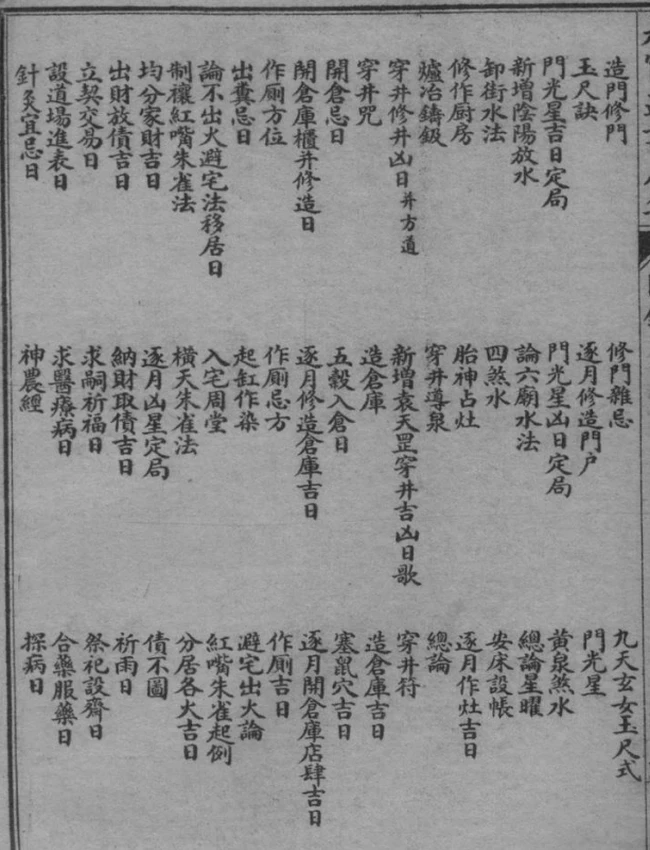 造門修門 修門雜忌 九天玄女玉尺式
玉尺訣 逐月修造門户 門光星
門光星吉日定局 門光星凶日定局 黄泉煞水
新增陰陽放水 論六廟水法 總論星曜
卸街水法 四煞水 安床設帳
修作厨房 胎神占灶 逐月作灶吉日
爐冶鑄鈒 穿井導泉 總論
穿井修井凶日并方道 新增袁天罡穿井吉凶日歌 穿井符
穿井咒 造倉庫 造倉庫吉日
開倉忌日 五穀入倉日 塞鼠穴吉日
開倉庫櫃并修造日 逐月修造倉庫吉日 逐月開倉庫店肆吉日
作厠方位 作厠忌方 作厠吉日
出糞忌日 起缸作染 避宅出火論
論不出火避宅法移居日 入宅周堂 紅嘴朱雀起例
制禳紅嘴朱雀法 橫天朱雀法 分居各火吉日
均分家財吉日 逐月凶星定局 債不圖
出財放債吉日 納財取債吉日 祈雨日
立契交易日 求嗣祈福日 祭祀設齋日
設道場進表日 求醫療病日 合藥服藥日
針灸宜忌日 神農經 探病日